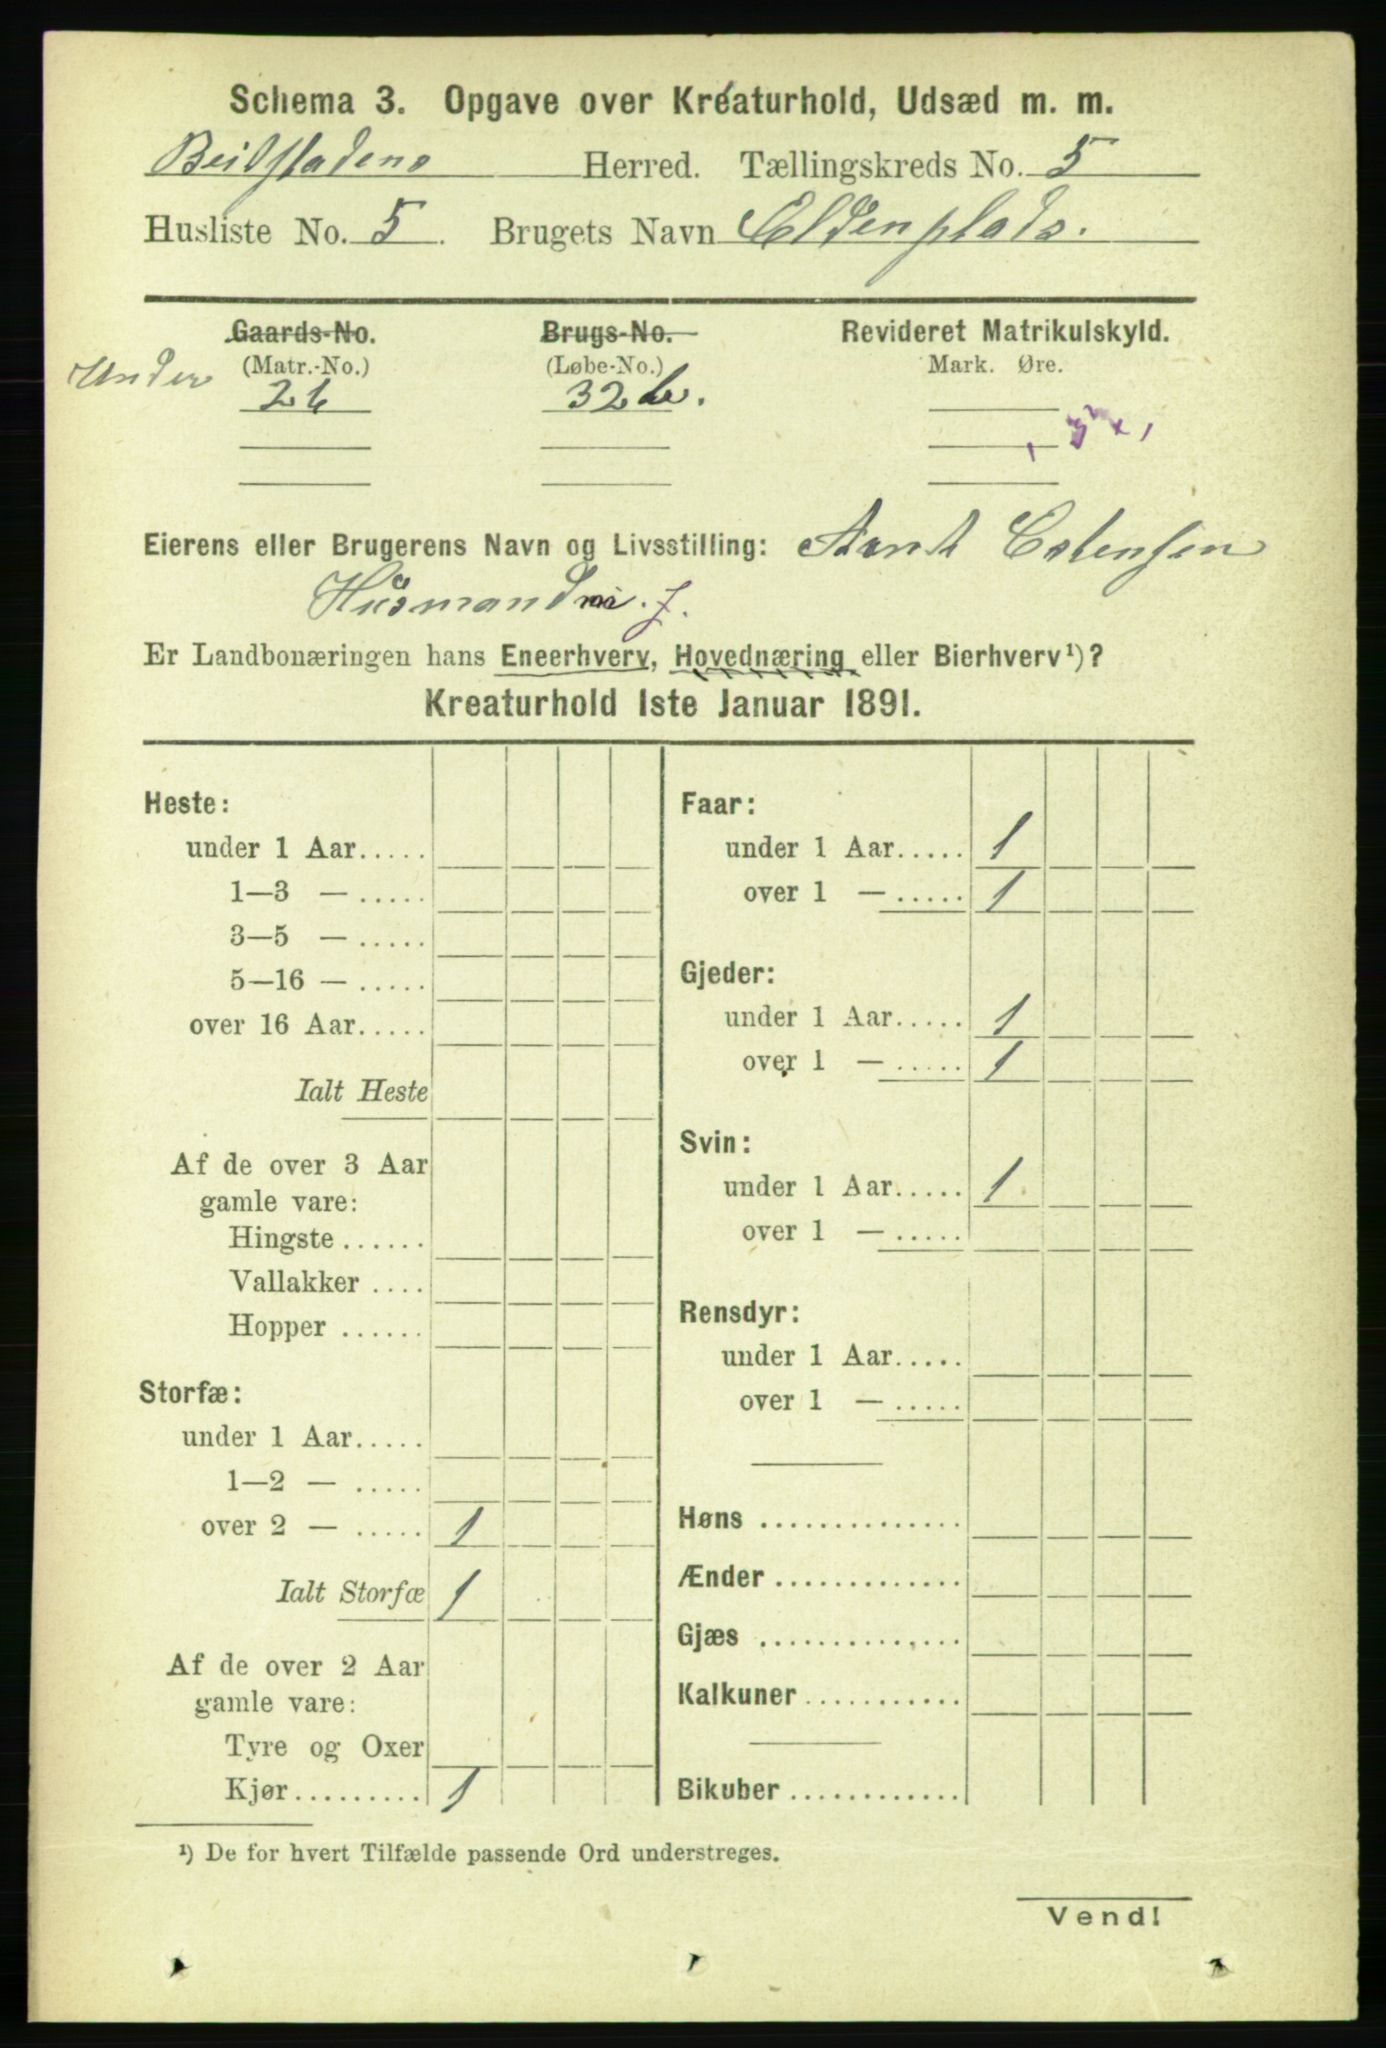 Schema 3. Opgave over Kreaturhold, Udsæd m. m.
Beitstadens Herred. Tællingskreds No. 5
Husliste No. 5. Brugets Navn Eldenplads.
Gaards-No. Brugs-No. Revideret Matrikulskyld.
Under (Matr.-No.) (Løbe-No.) Mark. Øre.
26 32 b.
Eierens eller Brugerens Navn og Livsstilling: Arnt Estensen
Husmand m. j.
Er Landbonæringen hans Eneerhverv, Hovednæring eller Bierhverv¹)?
Kreaturhold 1ste Januar 1891.
Heste:
under 1 Aar.....
1—3 — .....
3—5 — .....
5—16 — .....
over 16 Aar.....
Ialt Heste
Af de over 3 Aar
gamle vare:
Hingste ......
Vallakker ....
Hopper ......
Storfæ:
under 1 Aar.....
1—2 — .....
over 2 — ..... 1
Ialt Storfæ 1
Af de over 2 Aar
gamle vare:
Tyre og Oxer
Kjør......... 1
Faar:
under 1 Aar..... 1
over 1 — ..... 1
Gjeder:
under 1 Aar..... 1
over 1 — ..... 1
Svin:
under 1 Aar..... 1
over 1 — .....
Rensdyr:
under 1 Aar.....
over 1 — .....
Høns ..............
Ænder .............
Gjæs ..............
Kalkuner ...........
Bikuber ............
¹) De for hvert Tilfælde passende Ord understreges.
Vend!